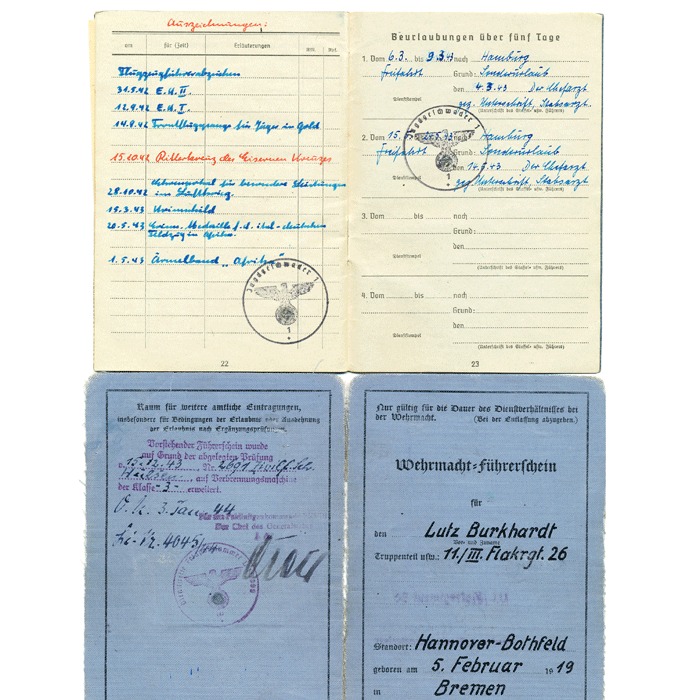 Auszeichnungen:
am für (Zeit) Erläuterungen
Flugzeugführerabzeichen
31.5.42 E.K. II.
12.9.42 E.K. I.
14.9.42 Frontflugspange für Jäger in Gold
15.10.42 Ritterkreuz des Eisernen Kreuzes
28.10.42 Ehrenpokal für besondere Leistungen
im Luftkrieg.
15.3.43 Krimschild
20.5.43 Erinn. Medaille f. d. ital.-deutschen
Feldzug in Afrika
1.5.43 Ärmelband „Afrika"
Jagdgeschwader 1
1
22
Beurlaubungen über fünf Tage
1. Vom 6.3. bis 9.3.43 nach Hamburg
Freifahrt Grund: Sonderurlaub
den 4.3.43 Der Chefarzt
Dienststempel gez. Unterschrift, Stabsarzt
Jagdgeschwader 1
1
2. Vom 15. nach Hamburg
Freifahrt Grund: Sonderurlaub
den 14.5.43 Der Chefarzt
Dienststempel gez. Unterschrift, Stabsarzt
3. Vom bis nach
Grund:
den
Dienststempel
(Unterschrift des Staffel- usw. Führers)
4. Vom bis nach
Grund:
den
Dienststempel
(Unterschrift des Staffel- usw. Führers)
23
Raum für weitere amtliche Eintragungen,
insbesondere für Bedingungen der Erlaubnis oder Ausdehnung
der Erlaubnis nach Ergänzungsprüfungen.
Vorstehender Führerschein wurde
auf Grund der abgelegten Prüfung
v. 15.12.43 Nr. 2691
auf Verbrennungsmaschine
der Klasse -3- erweitert.
O.U. 3. Jan. 44
Der Chef des
Nur gültig für die Dauer des Dienstverhältnisses bei
der Wehrmacht. (Bei der Entlassung abzugeben.)
Wehrmacht-Führerschein
für
den Lutz Burkhardt
Vor- und Zuname
Truppenteil usw.: 11./III. Flakrgt. 26
Standort: Hannover-Bothfeld
geboren am 5. Februar 1919
in Bremen